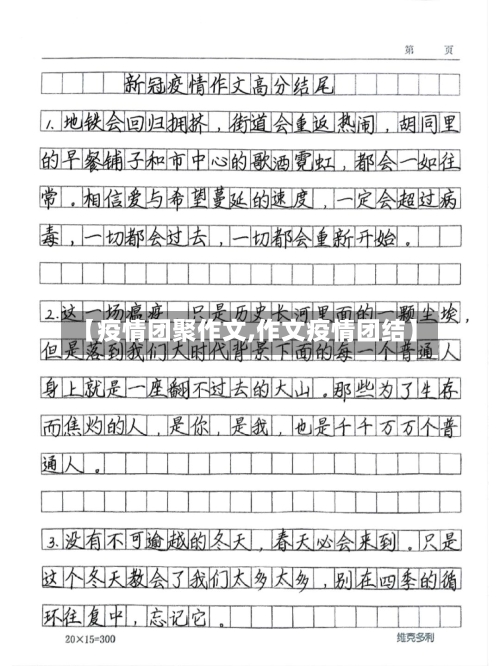 第 页
新冠疫情作文高分结尾
1.地铁会回归拥挤，街道会重返热闹，胡同里
的早餐铺子和市中心的歌酒霓虹，都会一如往
常。相信爱与希望蔓延的速度，一定会超过病
毒，一切都会过去，一切都会重新开始。
2.这一场瘟疫，只是历史长河里面的一颗尘埃，
【疫情团聚作文,作文疫情团结】
但是落到我们大时代背景下面的每一个普通人
身上就是一座翻不过去的大山。那些为了生存
而焦灼的人，是你，是我，也是千千万万个普
通人。
3.没有不可逾越的冬天，春天必会来到。只是
这个冬天教会了我们太多太多，别在四季的循
环往复中，忘记它。
20×15=300 维克多利